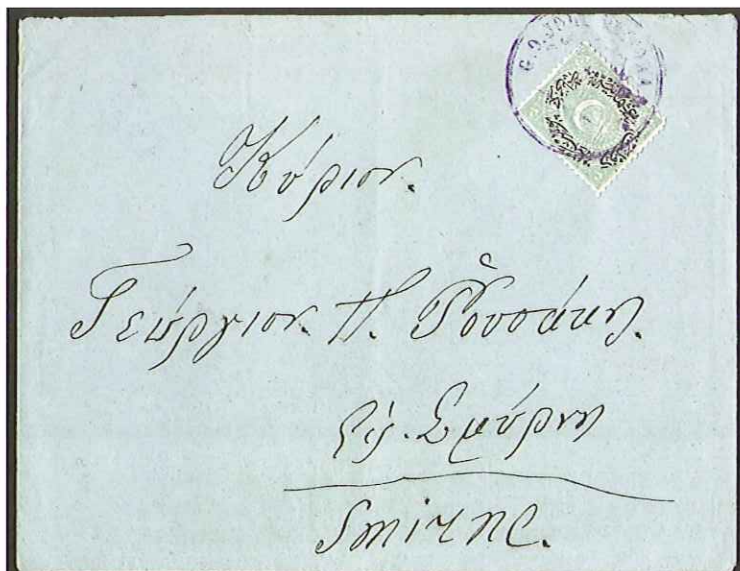 Κύριον.
Γεώργιον. Π. Ῥουσάκη.
Εἰς. Σμύρνη
Smirne.